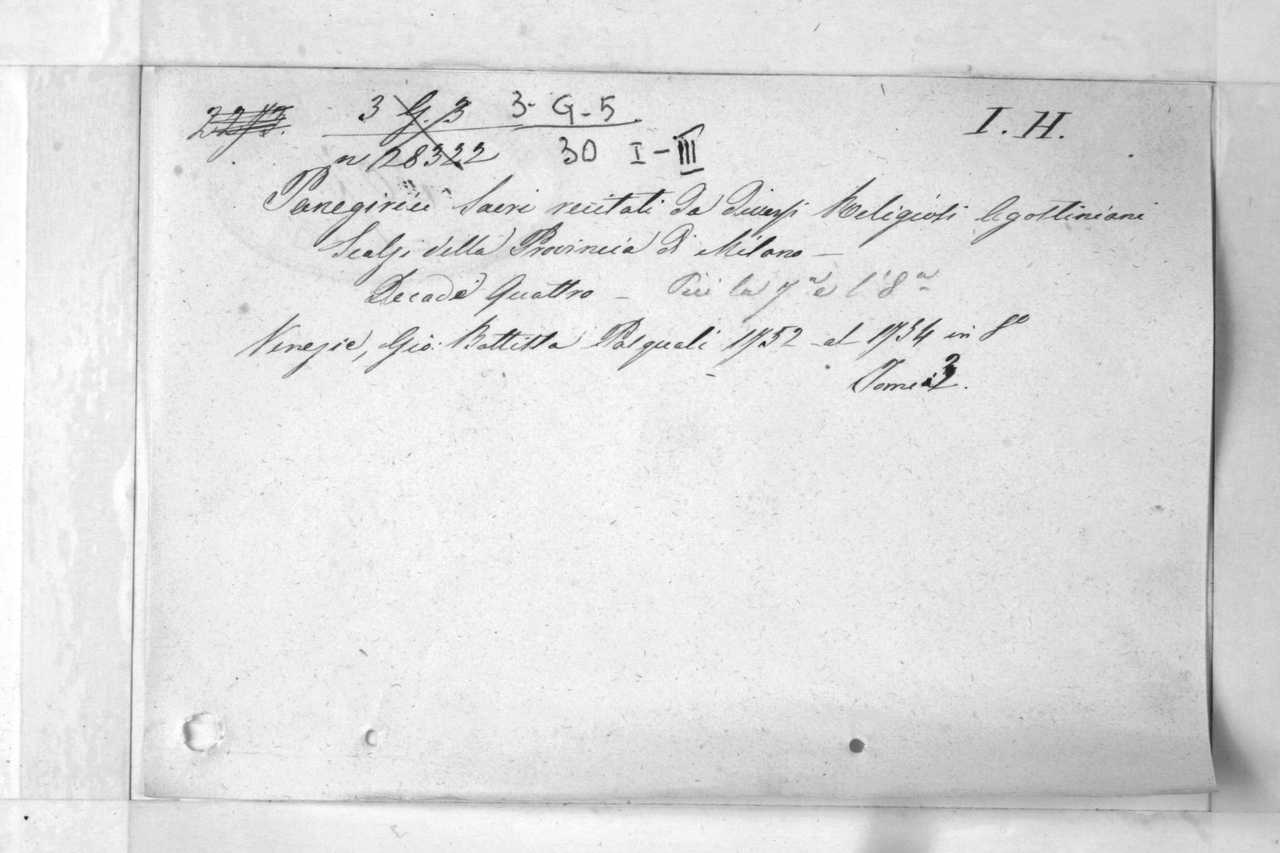 3 G. 3 3- G-5 I. H.
n 28322 30 I-III
Panegirici Sacri recitati da diversi Religiosi Agostiniani
Scalzi della Provincia di Milano –
Decade Quattro – Più la 7ª e l'8ª
Venezia, Gio: Battista Pasquali 1752 al 1754 in 8º
Tomi 3.